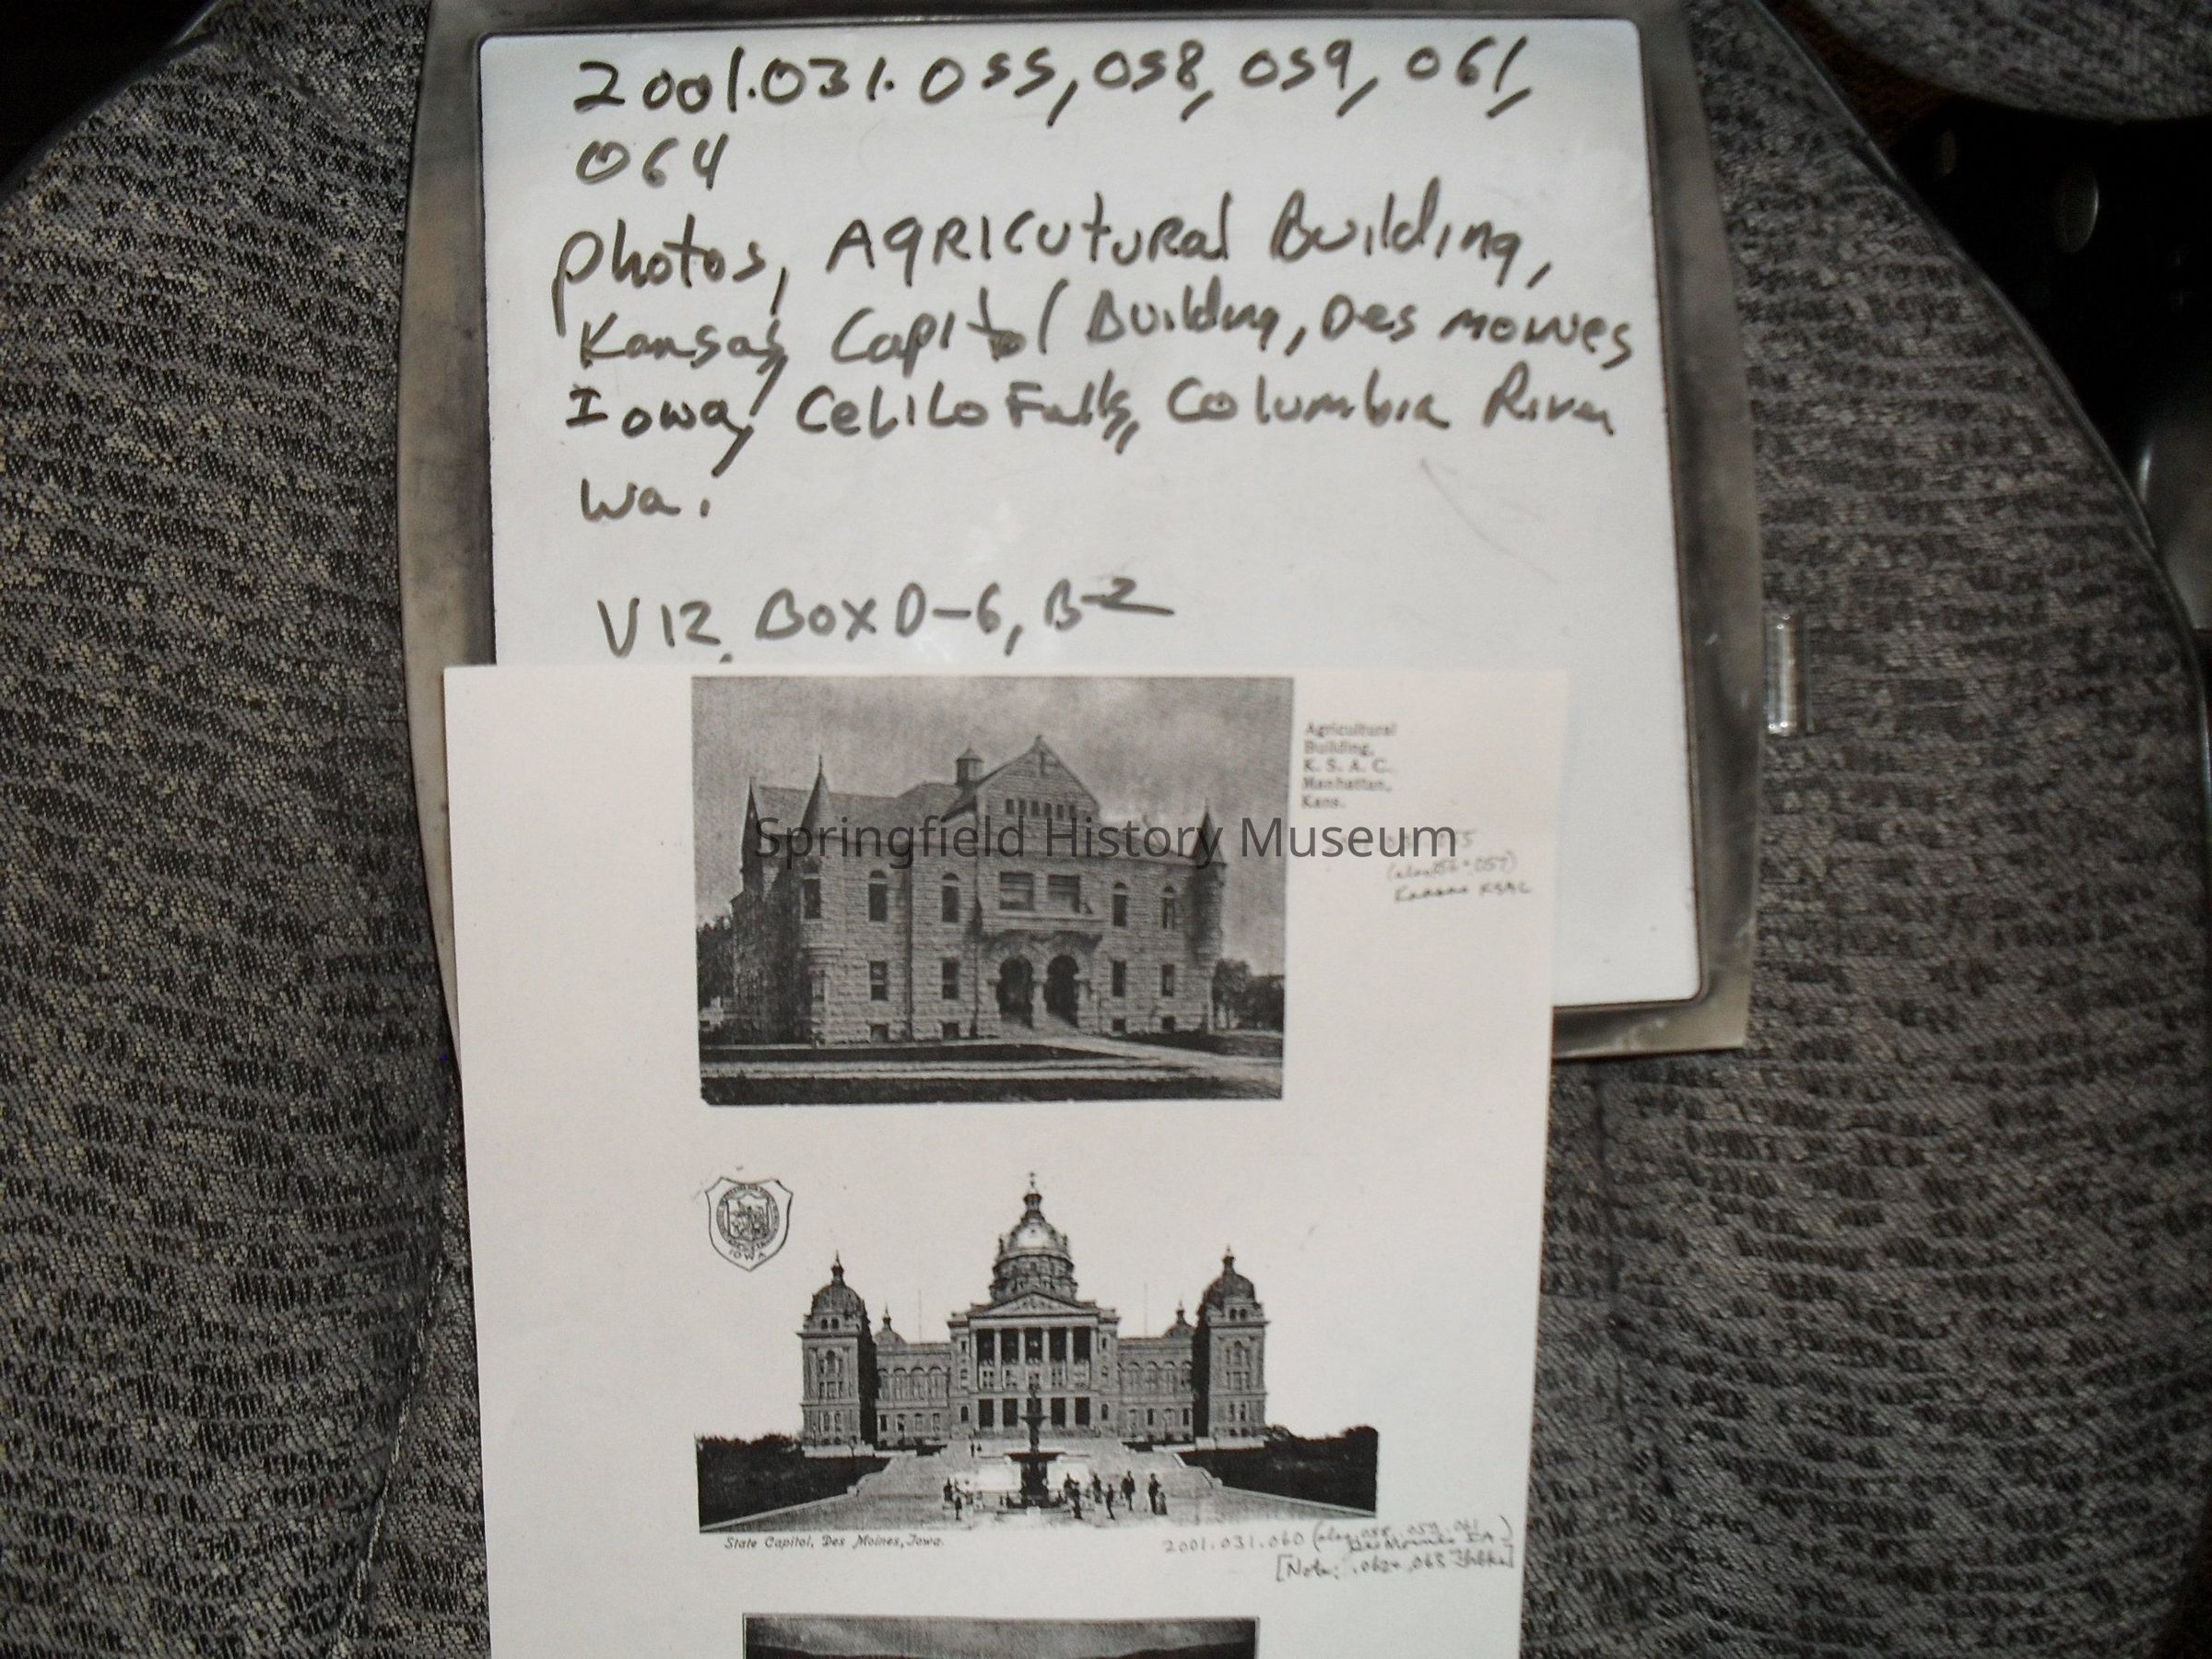 2001.031.055, 058, 059, 061,
064
Photos, AgRICUtuRal Building,
Kansas, Capitol Building, Des moines
Iowa, Celilo Falls, Columbia River
Wa.
V12, Box D-6, B-2
Agricultural
Building,
K. S. A. C.,
Manhattan,
Kans.
Springfield History Museum
(also 056 + 057)
Kansas KSAC
IOWA
State Capitol, Des Moines, Iowa.
2001.031.060 (also .058, .059, .061
Des Moines IA.)
[Note: .062 + .063